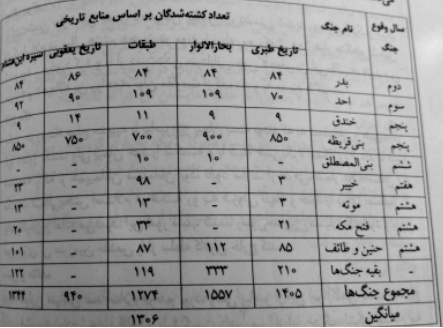 تعداد کشته‌شدگان بر اساس منابع تاریخی
سال وقوع جنگ نام جنگ تاریخ طبری بحارالانوار طبقات تاریخ یعقوبی سیره ابن‌هشام
دوم بدر ۸۴ ۸۴ ۸۴ ۸۶ ۸۴
سوم احد ۷۰ ۱۰۹ ۱۰۹ ۹۰ ۹۲
پنجم خندق ۹ ۹ ۱۱ ۱۴ ۹
پنجم بنی‌قریظه ۸۵۰ ۹۰۰ ۷۰۰ ۷۵۰ ۸۵۰
ششم بنی‌المصطلق - ۱۰ ۱۰ - -
هفتم خیبر ۳ - ۹۸ - ۲۳
هشتم موته ۳ - ۱۳ - ۱۳
هشتم فتح مکه ۲۱ - ۳۳ - ۲۰
هشتم حنین و طائف ۸۵ ۱۱۲ ۸۷ - ۱۰۱
- بقیه جنگ‌ها ۲۱۰ ۳۳۳ ۱۱۹ - ۱۲۲
مجموع جنگ‌ها ۱۴۰۵ ۱۵۵۷ ۱۲۷۴ ۹۴۰ ۱۳۴۴
میانگین ۱۳۰۶